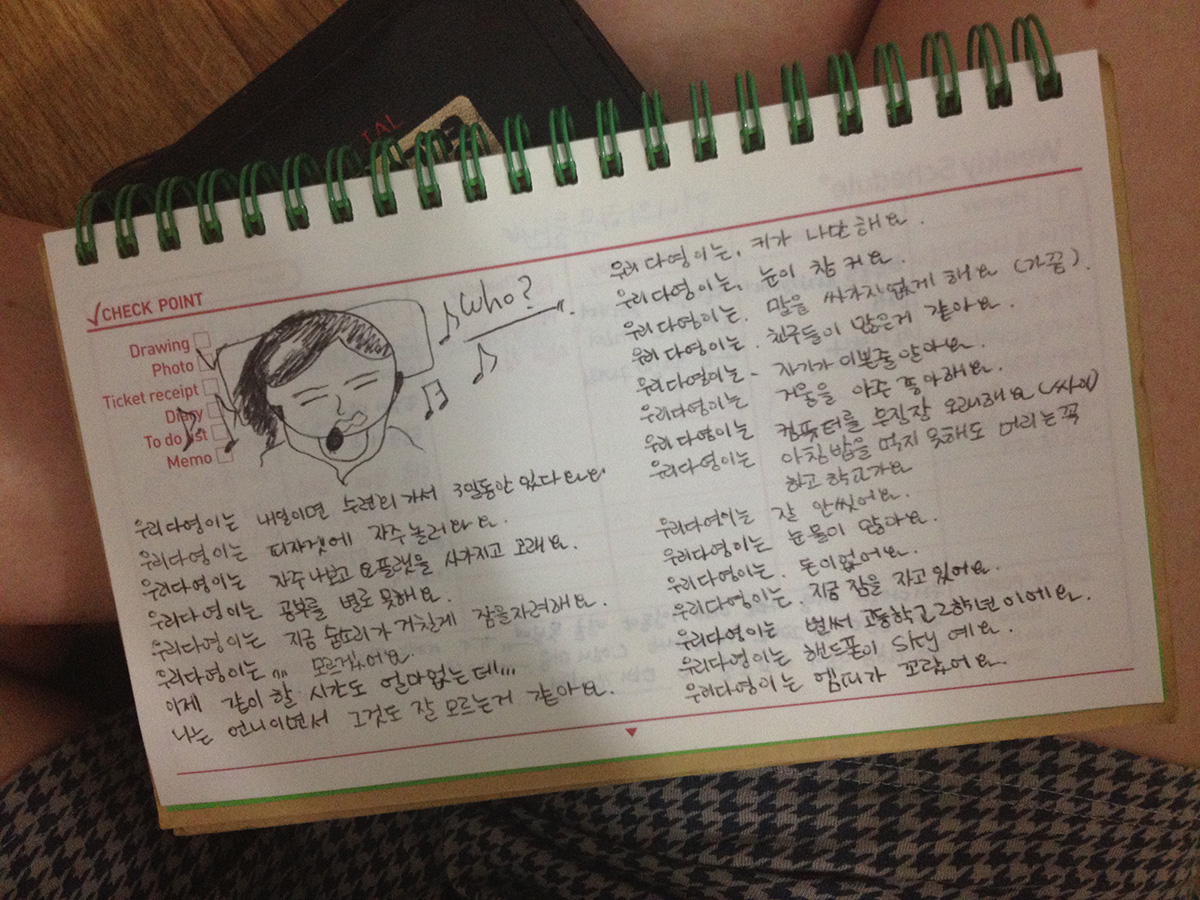 TAL
✓CHECK POINT
Drawing
Photo
Ticket receipt
Diary
To do list
Memo
Who?
우리 다영이는, 키가 나만해요.
우리다영이는, 눈이 참 커요.
우리다영이는. 말을 싸가지없게 해요 (가끔).
우리 다영이는. 친구들이 많은거 같아요.
우리다영이는 - 자기가 이쁜줄 알아요.
우리다영이는 거울을 아주 좋아해요.
우리 다영이는 컴퓨터를 무진장 오래해요 (싸이)
우리다영이는 아침밥을 먹지 못해도 머리는 꼭
하고 학교가요
우리다영이는 잘 안씻어요.
우리다영이는 눈물이 많아요.
우리다영이는. 돈이없어요.
우리다영이는. 지금 잠을 자고있어요.
우리다영이는 벌써 고등학교2학년 이에요.
우리다영이는 핸드폰이 sky 예요.
우리다영이는 엠피가 꼬랐어요.
우리다영이는 내일이면 수련회 가서 3일동안 있다 와요
우리다영이는 피자겟에 자주놀러와요.
우리다영이는 자주나보고 요플렛을 사가지고 오래요.
우리다영이는 공부를 별로 못해요.
우리다영이는 지금 숨소리가 거칠게 잠을자려해요.
우리다영이는 ,,, 모르겠어요.
이제 같이 할 시간도 얼마없는데,,,
나는 언니이면서 그것도 잘 모르는거 같아요.